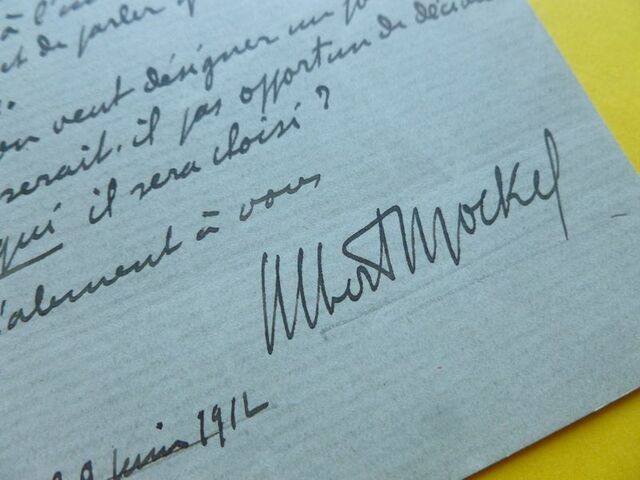 à l'
et de parler
on veut désigner un
serait-il pas opportun de décider
qui il sera choisi ?
alement à vous
Albert Mockel
9 juin 1912